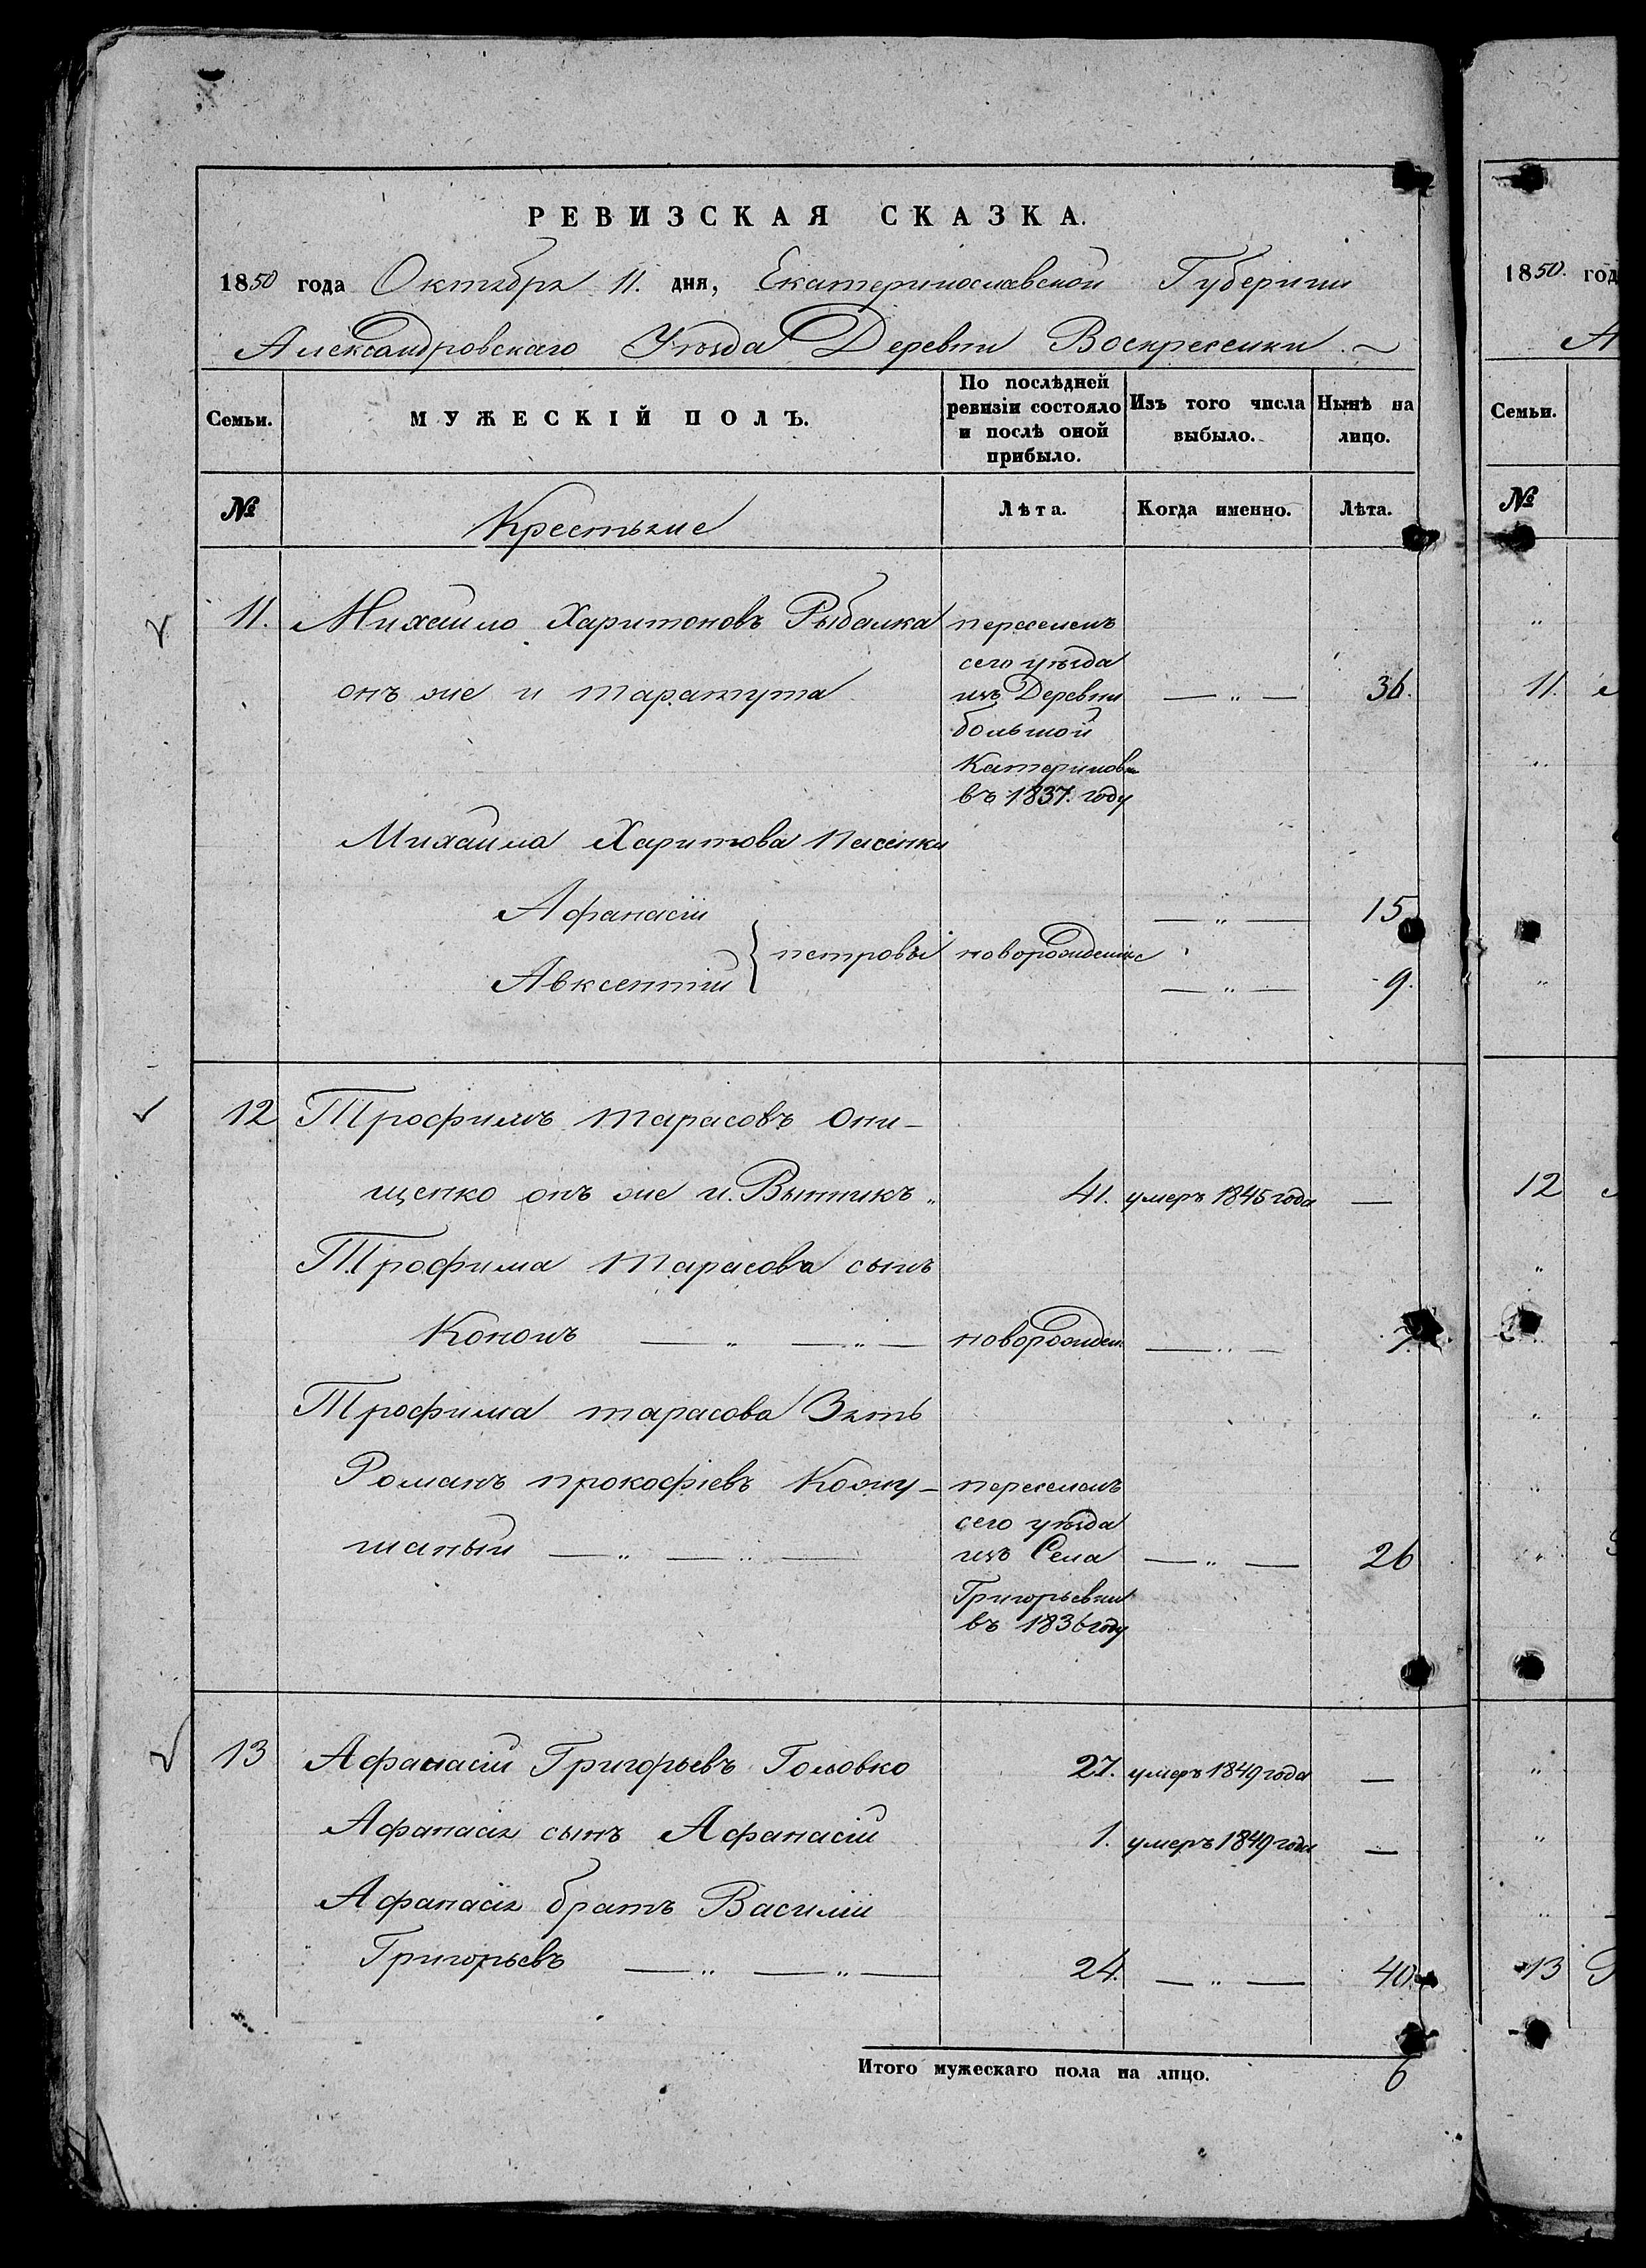 РЕВИЗСКАЯ СКАЗКА.
1850 года Октября 11. дня, Екатеринославской Губернии
Александровскаго Уѣзда Деревни Воскресенки
Семьи. МУЖЕСКІЙ ПОЛЪ. По послѣдней ревизіи состояло и послѣ оной прибыло. Изъ того числа выбыло. Нынѣ на лицо.
№ Крестьяне Лѣта. Когда именно. Лѣта.
11. Михайло Харитоновъ Рыбалка переселенъ
сего уѣзда
онъ же и таранута изъ Деревни — „ — 36.
большой
Катериновки
въ 1837. году
Михайла Харитова Пасенки
Афанасій — „ — 15
петровы новорожденые
Авксентій — „ — 9.
12 Трофимъ Тарасовъ Они-
щенко онъ же и Вынникъ „ 41. умеръ 1845 года —
Трофима Тарасова сынъ
Кононъ — „ — „ — новорожден — „ — 7.
Трофима тарасова Зять
Романъ прокофіевъ Кожу- переселенъ
сего уѣзда
шаный — „ — „ — изъ Села — „ — 26
Григорьевки
въ 1836 году
13 Афанасій Григорьевъ Головко 27. умеръ 1849 года —
Афанасія сынъ Афанасій 1. умеръ 1849 года —
Афанасія братъ Василій
Григорьевъ — „ — „ — 24. — „ — 40.
Итого мужескаго пола на лицо. 6
1850. год
А
Семьи.
№
„
11.
„
„
12
„
„
„
„
„
„
„
13